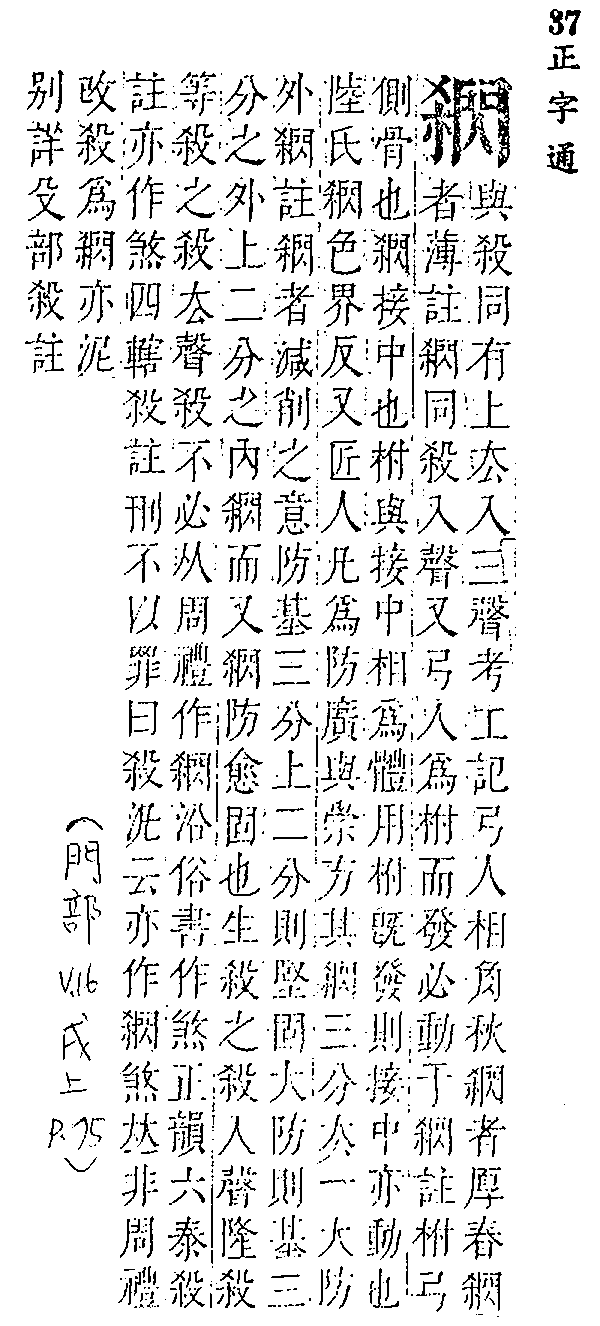 37 正字通
閷
與殺同有上厺入三聲考工記弓人相角秋閷者厚春閷
者薄註閷同殺入聲又弓人爲柎而發必動于閷註柎弓
側骨也閷接中也柎與接中相爲體用柎旣發則接中亦動也
陸氏閷色界反又匠人凡爲防廣與崇方其閷三分厺一大防
外閷註閷者減削之意防基三分上二分則堅固大防則基三
分之外上二分之內閷而又閷防愈固也生殺之殺入聲隆殺
等殺之殺厺聲殺不必从周禮作閷沿俗書作煞正韻六泰殺
註亦作煞四轄殺註刑不以罪曰殺泥云亦作閷煞𠀤非周禮
改殺爲閷亦泥
别詳殳部殺註
(門部 V.16 戌上 P.75)